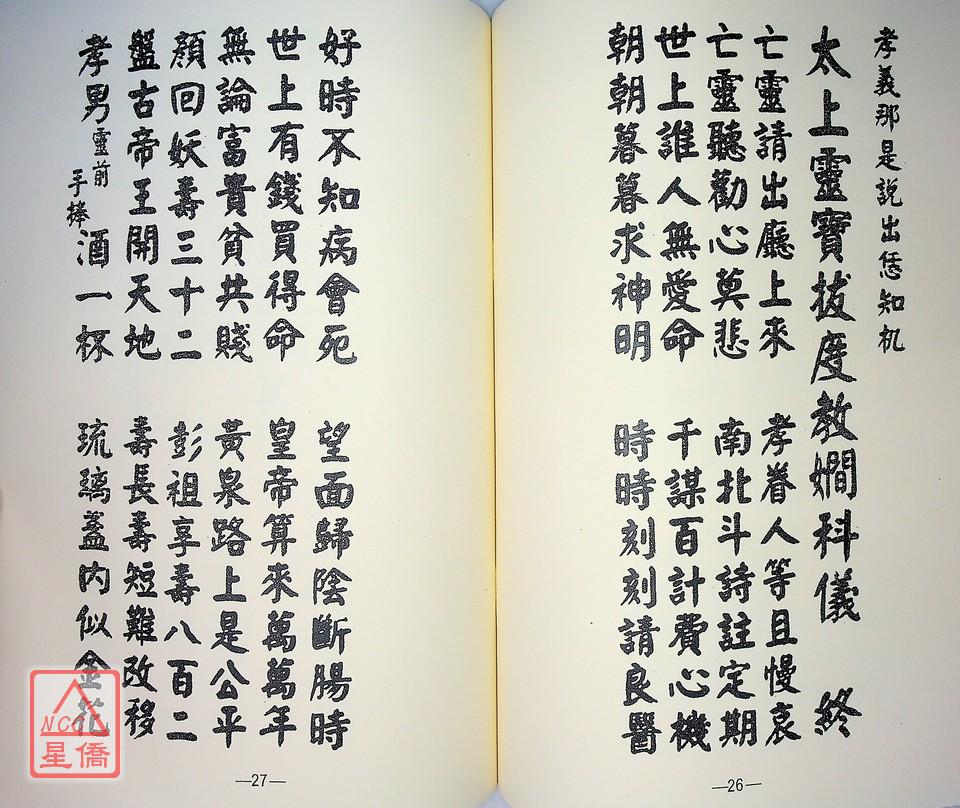 孝義那是說出恁知机
太上靈寶拔度教嫺科儀 終
亡靈請出廳上來 孝眷人等且慢哀
亡靈聽勸心莫悲 南北斗詩註定期
世上誰人無愛命 千謀百計費心機
朝朝暮暮求神明 時時刻刻請良醫
—26—
好時不知病會死 望面歸陰斷腸時
世上有錢買得命 皇帝算來萬萬年
無論富貴貧共賤 黃泉路上是公平
顏回妖壽三十二 彭祖享壽八百二
盤古帝王開天地 壽長壽短難改移
孝男靈前手捧酒一杯 琉璃盖内似金花
—27—
NCC
星僑